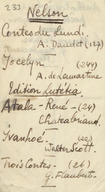 233
Nelson
Contes du Lundi.
A. Daudet (127)
Jocelyn - (244)
A. de Lamartine
Edition Lutetia
Atala - René - (24)
Chateaubriand.
Ivanhoé -
Walter Scott.
Trois Contes - (26)
G. Flaubert.